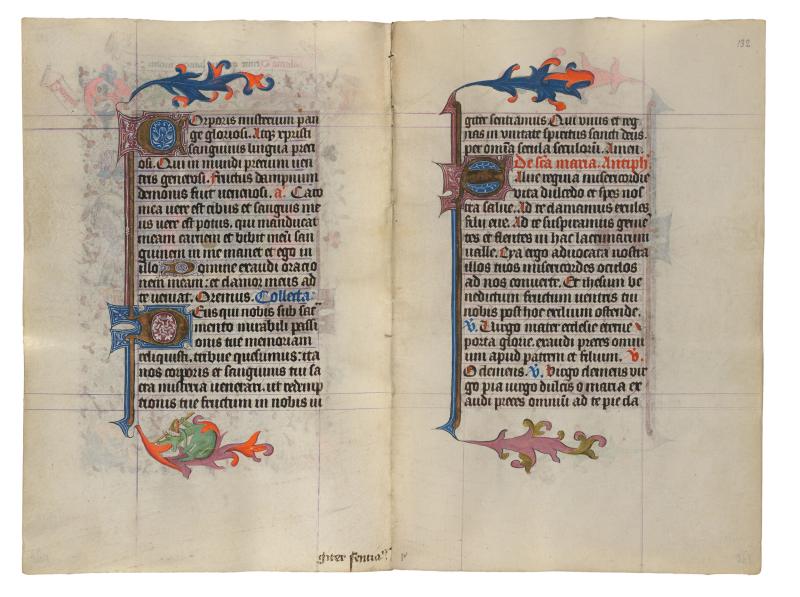 Corporis misterium pan
ge gloriosi. Atqz christi
sanguinis lingua preci
osi. Qui in mundi precium uen
tris generosi. fructus dampnum
demonis fuit uenenosi. a. Caro
mea uere est cibus et sanguis me
us uere est potus. qui manducat
meam carnem et bibit meū san
guinem in me manet et ego in
illo Domine exaudi oracio
nem meam: et clamor meus ad
te ueniat. Oremus. Collecta
Deus qui nobis sub sac
mento mirabili passi
onis tue memoriam
reliquisti. tribue quesumus: ita
nos corporis et sanguinis tui sa
cra misteria uenerari. ut redemp
tionis tue fructum in nobis iu
giter sentia
132
giter sentiamus Qui uiuis et reg
nas in unitate spiritus sancti deus.
per omīa secula seculorū. Amen.
De sc̄a maria. Antiph
Salue regina misericordie
vita dulcedo et spes nos
tra salue. Ad te clamamus exules
filii eue. Ad te suspiramus geme
tes et flentes in hac lacrimarum
ualle. Eya ergo aduocata nostra
illos tuos misericordes oculos
ad nos conuerte. Et ihesum be
nedictum fructum uentris tui
nobis post hoc exilium ostende.
V. Uirgo mater ecclesie eterne
porta glorie. exaudi preces omni
um apud patrem et filium. V.
O clemens. V. Uirgo clemens uir
go pia uirgo dulcis o maria ex
audi preces omniū ad te pie cla